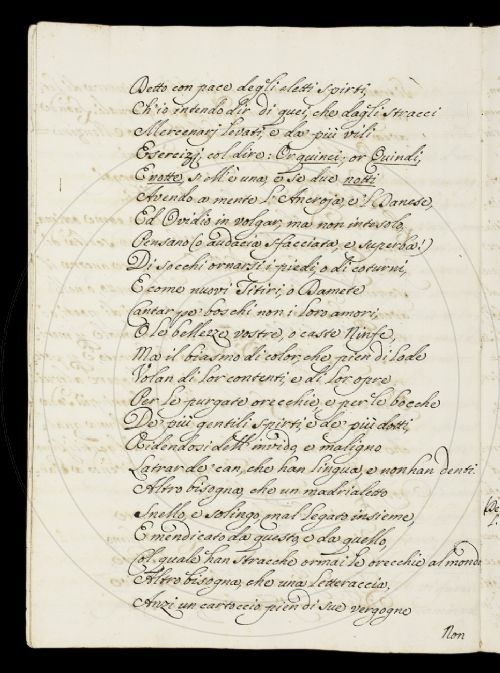 Detto con pace degli eletti spirti,
Ch'io intendo dir di quei, che dagli stracci
Mercenarj levati, e da più vili
Esercizj, col dire: Or quinci, or Quindi,
E notte, s'ell'è una, e se due notti
Avendo a mente l'Ancroja, e 'l Danese,
Ed Ovidio in volgar, ma non inteso lo,
Pensano (o audacia sfacciata, e superba!)
Di socchi ornarsi i piedi, o di coturni,
E come nuovi Titiri, o Damete
Cantar pe' boschi non i loro amori,
O le bellezze vostre, o caste Ninfe,
Ma il biasmo di color, che pien di lode
Volan di lor contenti, e di lor opre
Per le purgate orecchie, e per le bocche
De' più gentili spirti, e de' più dotti,
Ridendosi dell' invido, e maligno
Latrar de' can, che han lingua, e non han denti.
Altro bisogna, che un madrialetto
Snello, e solingo, mal legato insieme,
E mendicato da questo, e da quello,
Col quale han stracche ormai le orecchie al mondo
Altro bisogna, che una Letteraccia,
Anzi un cartoccio pien di sue vergogne
Non